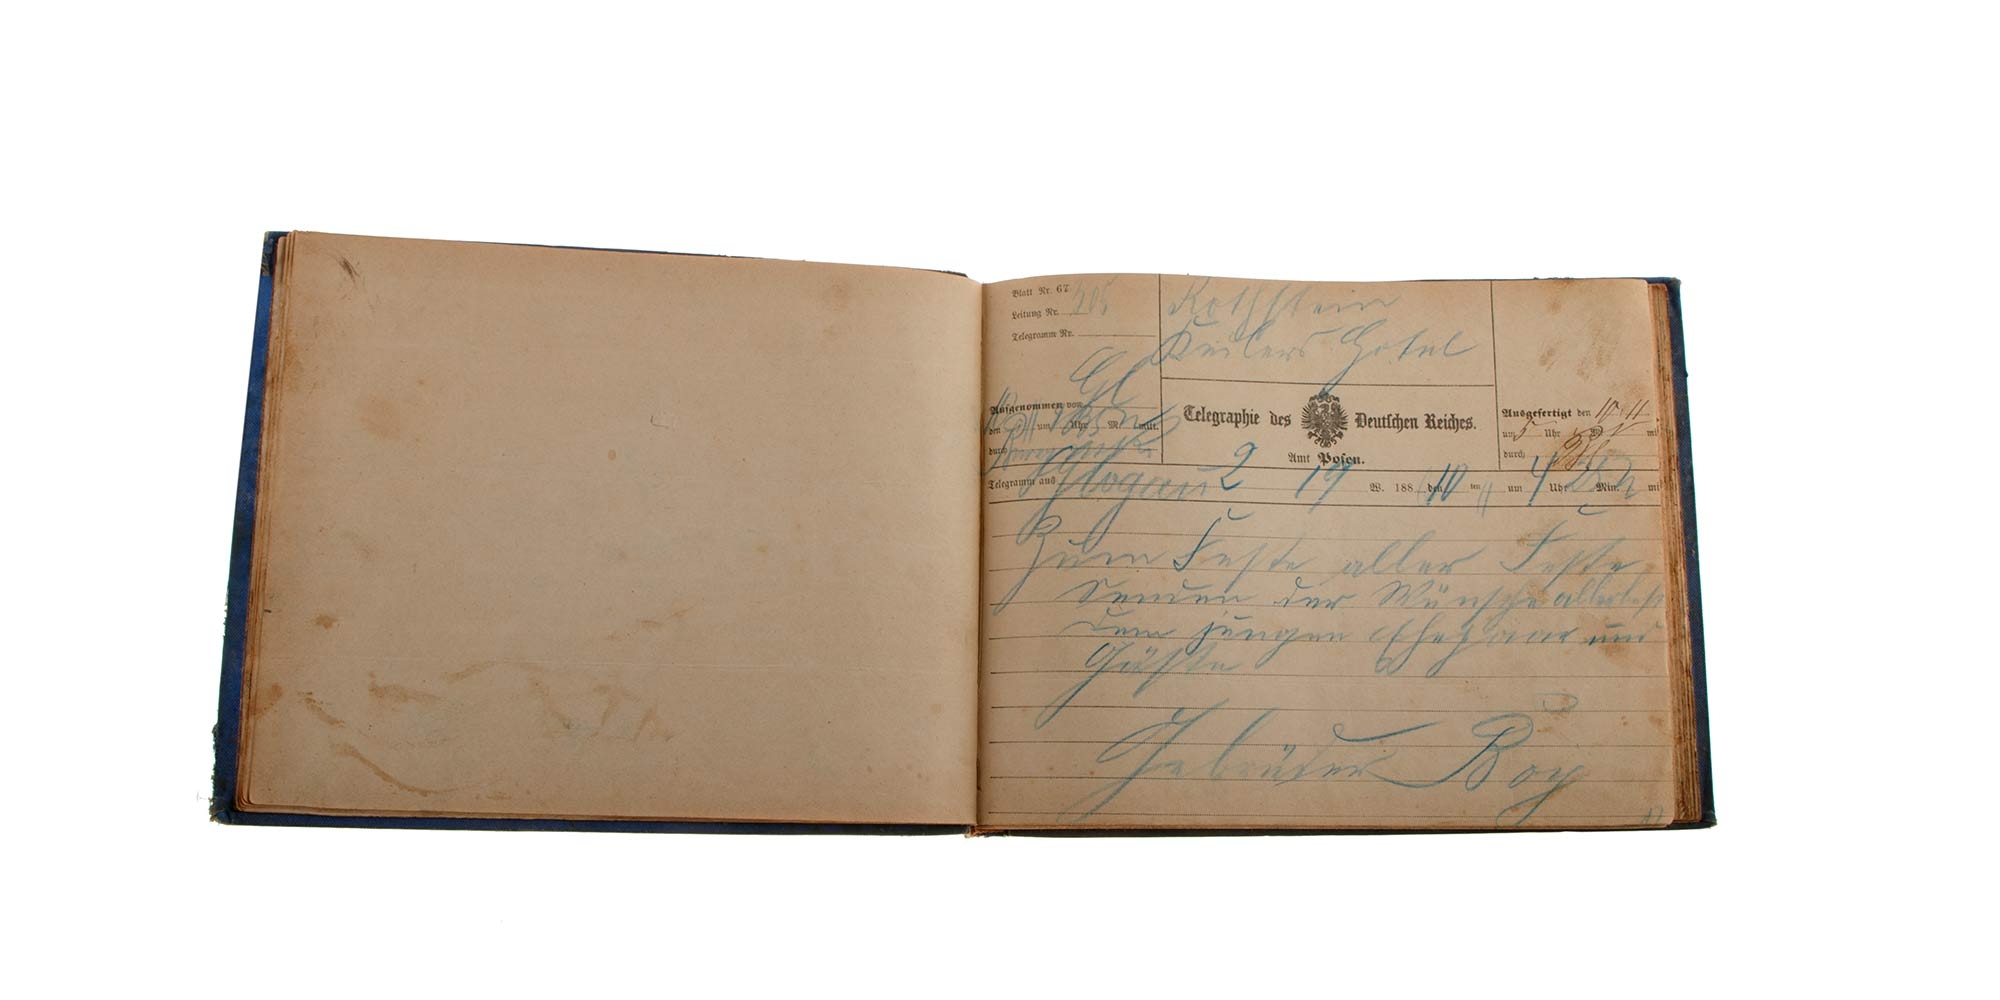 Blatt Nr. 67
Leitung Nr. 205
Telegramm Nr.
Rothstein
Keilers Hotel
Aufgenommen von Gl
den um Uhr M mitt.
durch
Telegraphie des Deutschen Reiches.
Amt Posen.
Ausgefertigt den 10 11
um 5 Uhr mi
durch
Telegramm aus Glogau 2 19 W. 188 den 10 ten 11 um 4 Uhr Min. mi
Zum Feste aller Feste
senden der Wünsche allerbest
dem jungen Ehepaar und
Gäste
Gebrüder Boy